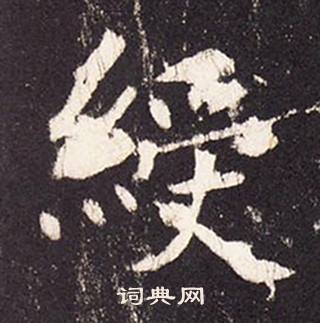 綬
词典网